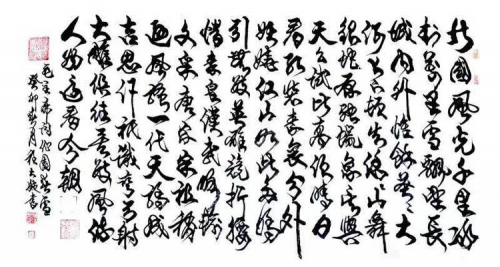 北国风光千里冰
封万里雪飘望长
城内外惟余莽莽大
河上下顿失滔滔山舞
银蛇原驰蜡象欲与
天公试比高须晴日
看红装素裹分外
妖娆江山如此多娇
引无数英雄竞折腰
惜秦皇汉武略输
文采唐宗宋祖稍
逊风骚一代天骄成
吉思汗祇识弯弓射
大雕俱往矣数风流
人物还看今朝
毛主席词沁园春雪
癸卯 月 书